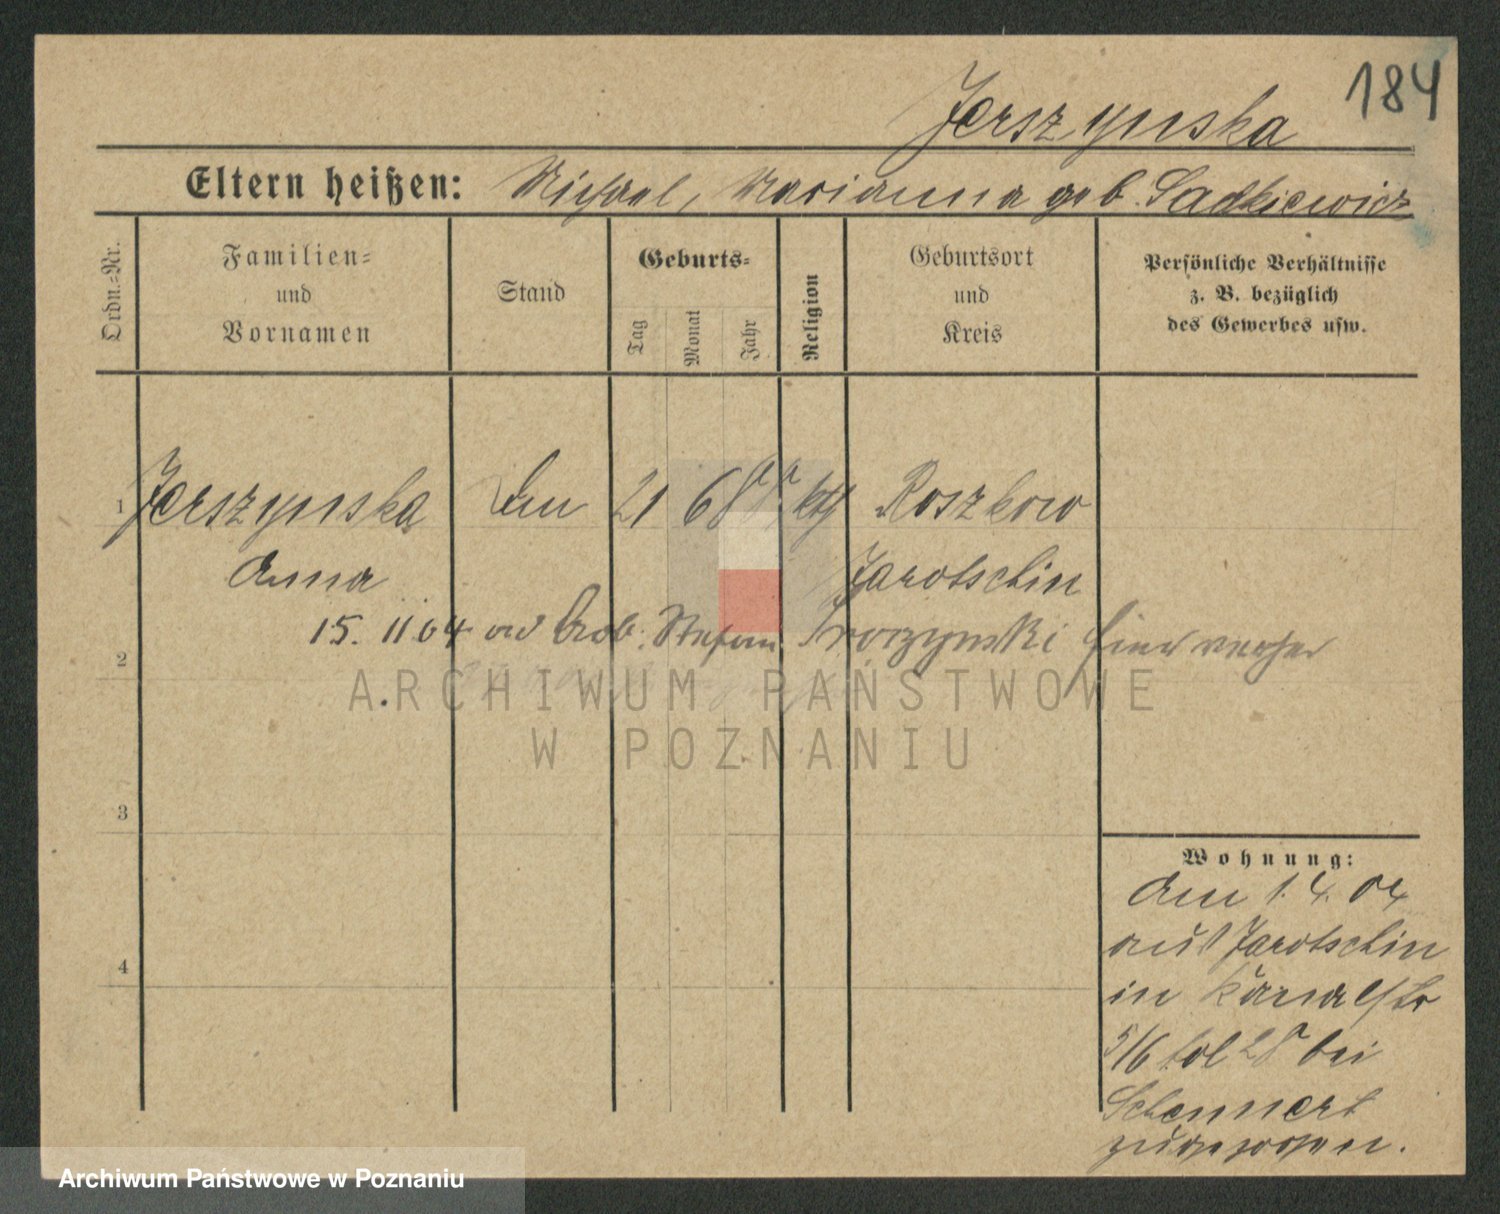 184
Jerszynska
Eltern heißen: Michael, Marianna geb. Sadkiewicz
Ordn.-Nr.
Familien-
und
Vornamen
Stand
Geburts-
Tag
Monat
Jahr
Religion
Geburtsort
und
Kreis
Persönliche Verhältnisse
z. B. bezüglich
des Gewerbes usw.
1 Jerszynska 21 6 88 kth Roszkow
Anna Jarotschin
15. 11 04 Arb. Stefan hier
2
ARCHIWUM PAŃSTWOWE
W POZNANIU
3
Wohnung:
Am 1.4.04
aus Jarotschin
in Kanalstr
5/6 bei
4
Schennert
zugezogen.
Archiwum Państwowe w Poznaniu